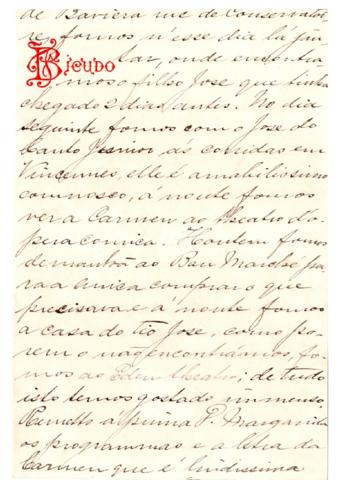 de Baviera rue de Conservatoi
re, fomos n'esse dia lá jan
Bicudo
tar, onde encontrá
mos o filho José que tinha
chegado 2 dias antes. No dia
seguinte fomos com o José do
Canto Junior, ás corridas em
Vincennes, elle é amabilissimo
comnosco, á noute fomos
ver a Carmen ao theatro d'o
pera comica. Hontem fomos
de manhã ao Bon Marché pa
ra a Anica comprar o que
precisava e á noute fomos
a casa do tio José, como po
rem o não encontrámos, fo
mos ao Eden theatro; de tudo
isto temos gostado immenso
Remetto á prima P. Margarida
os programmas e a letra da
Carmen que é lindissima